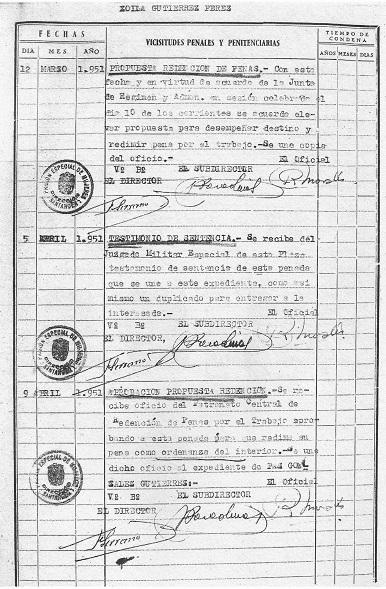 ZOILA GUTIERREZ PEREZ
FECHAS
VICISITUDES PENALES Y PENITENCIARIAS
TIEMPO DE CONDENA
DIA MES AÑO
AÑOS MESES DIAS
12 MARZO 1.951 PROPUESTA REDENCION DE PENAS.- Con esta
fecha y en virtud de acuerdo de la Junta
de Regimen y Admon. en sesión celebrada el
dia 10 de los corrientes se acuerda ele-
var propuesta para desempeñar destino y
redimir pena por el trabajo.-Se une copia
del oficio.- El Oficial
Vº Bº EL SUBDIRECTOR
EL DIRECTOR
PRISIÓN ESPECIAL DE MUJERES
DIRECCION
SANTANDER
5 ABRIL 1.951 TESTIMONIO DE SENTENCIA.- Se recibe del
Juzgado Militar Especial de esta Plaza
testomonio de sentencia de esta penada
que se une a este expediente, como asi
mismo un duplicado para entregar a la
interesada.- El Oficial
Vº Bº EL SUBDIRECTOR
EL DIRECTOR,
PRISIÓN ESPECIAL DE MUJERES
SANTANDER
9 ABRIL 1.951 APROBACION PROPUESTA REDENCION.-Se re-
cibe oficio del Patronato Central de
Redención de Penas por el Trabajo aprob-
bando a esta penada para que redima su
pena como ordenanza del interior. Se une
dicho oficio al expediente de PAZ GON
ZALEZ GUTIERREZ:- El Oficial
Vº Bº EL SUBDIRECTOR
EL DIRECTOR
PRISIÓN ESPECIAL DE MUJERES
SANTANDER